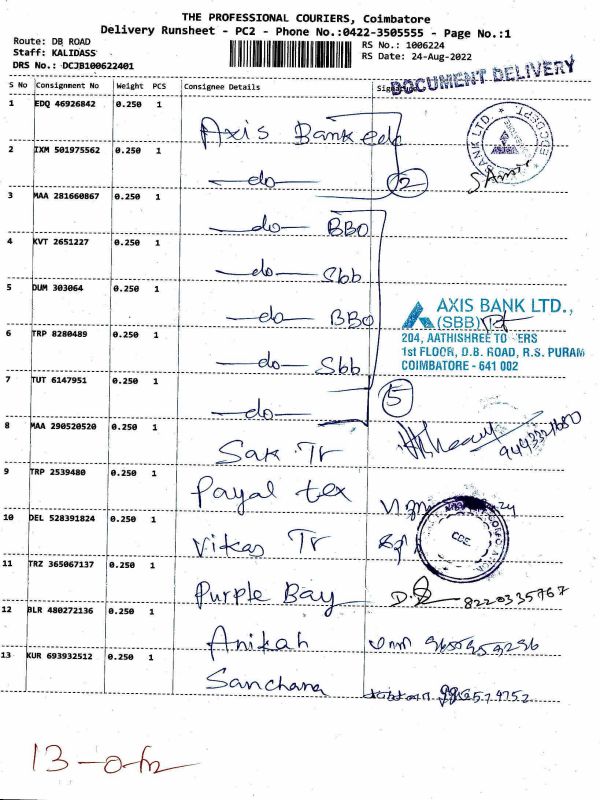 THE PROFESSIONAL COURIERS, Coimbatore
Delivery Runsheet - PC2 - Phone No.:0422-3505555 - Page No.:1
Route: DB ROAD
Staff: KALIDASS
DRS No.: DCJB100622401
RS No.: 1006224
RS Date: 24-Aug-2022
DOCUMENT DELIVERY
S No Consignment No Weight PCS Consignee Details
1 EDQ 46926842 0.250 1 Axis Bank edc
2 IXM 501975562 0.250 1 —do— 2
3 MAA 281660867 0.250 1 —do— BBO
4 KVT 2651227 0.250 1 —do— Sbb
5 DUM 303064 0.250 1 —do— BBO
AXIS BANK LTD.,
(SBB)
204, AATHISHREE TO ERS
1st FLOOR, D.B. ROAD, R.S. PURAM
COIMBATORE - 641 002
6 TRP 8280489 0.250 1 —do— Sbb
7 TUT 6147951 0.250 1 —do— 5
8 MAA 290520520 0.250 1 Sak Tr
9 TRP 2539480 0.250 1 Payal tex
10 DEL 528391824 0.250 1 Vikas Tr
11 TRZ 365067137 0.250 1 Purple Bay 8220335767
12 BLR 480272136 0.250 1 Anikah
13 KUR 693932512 0.250 1 Sanchana